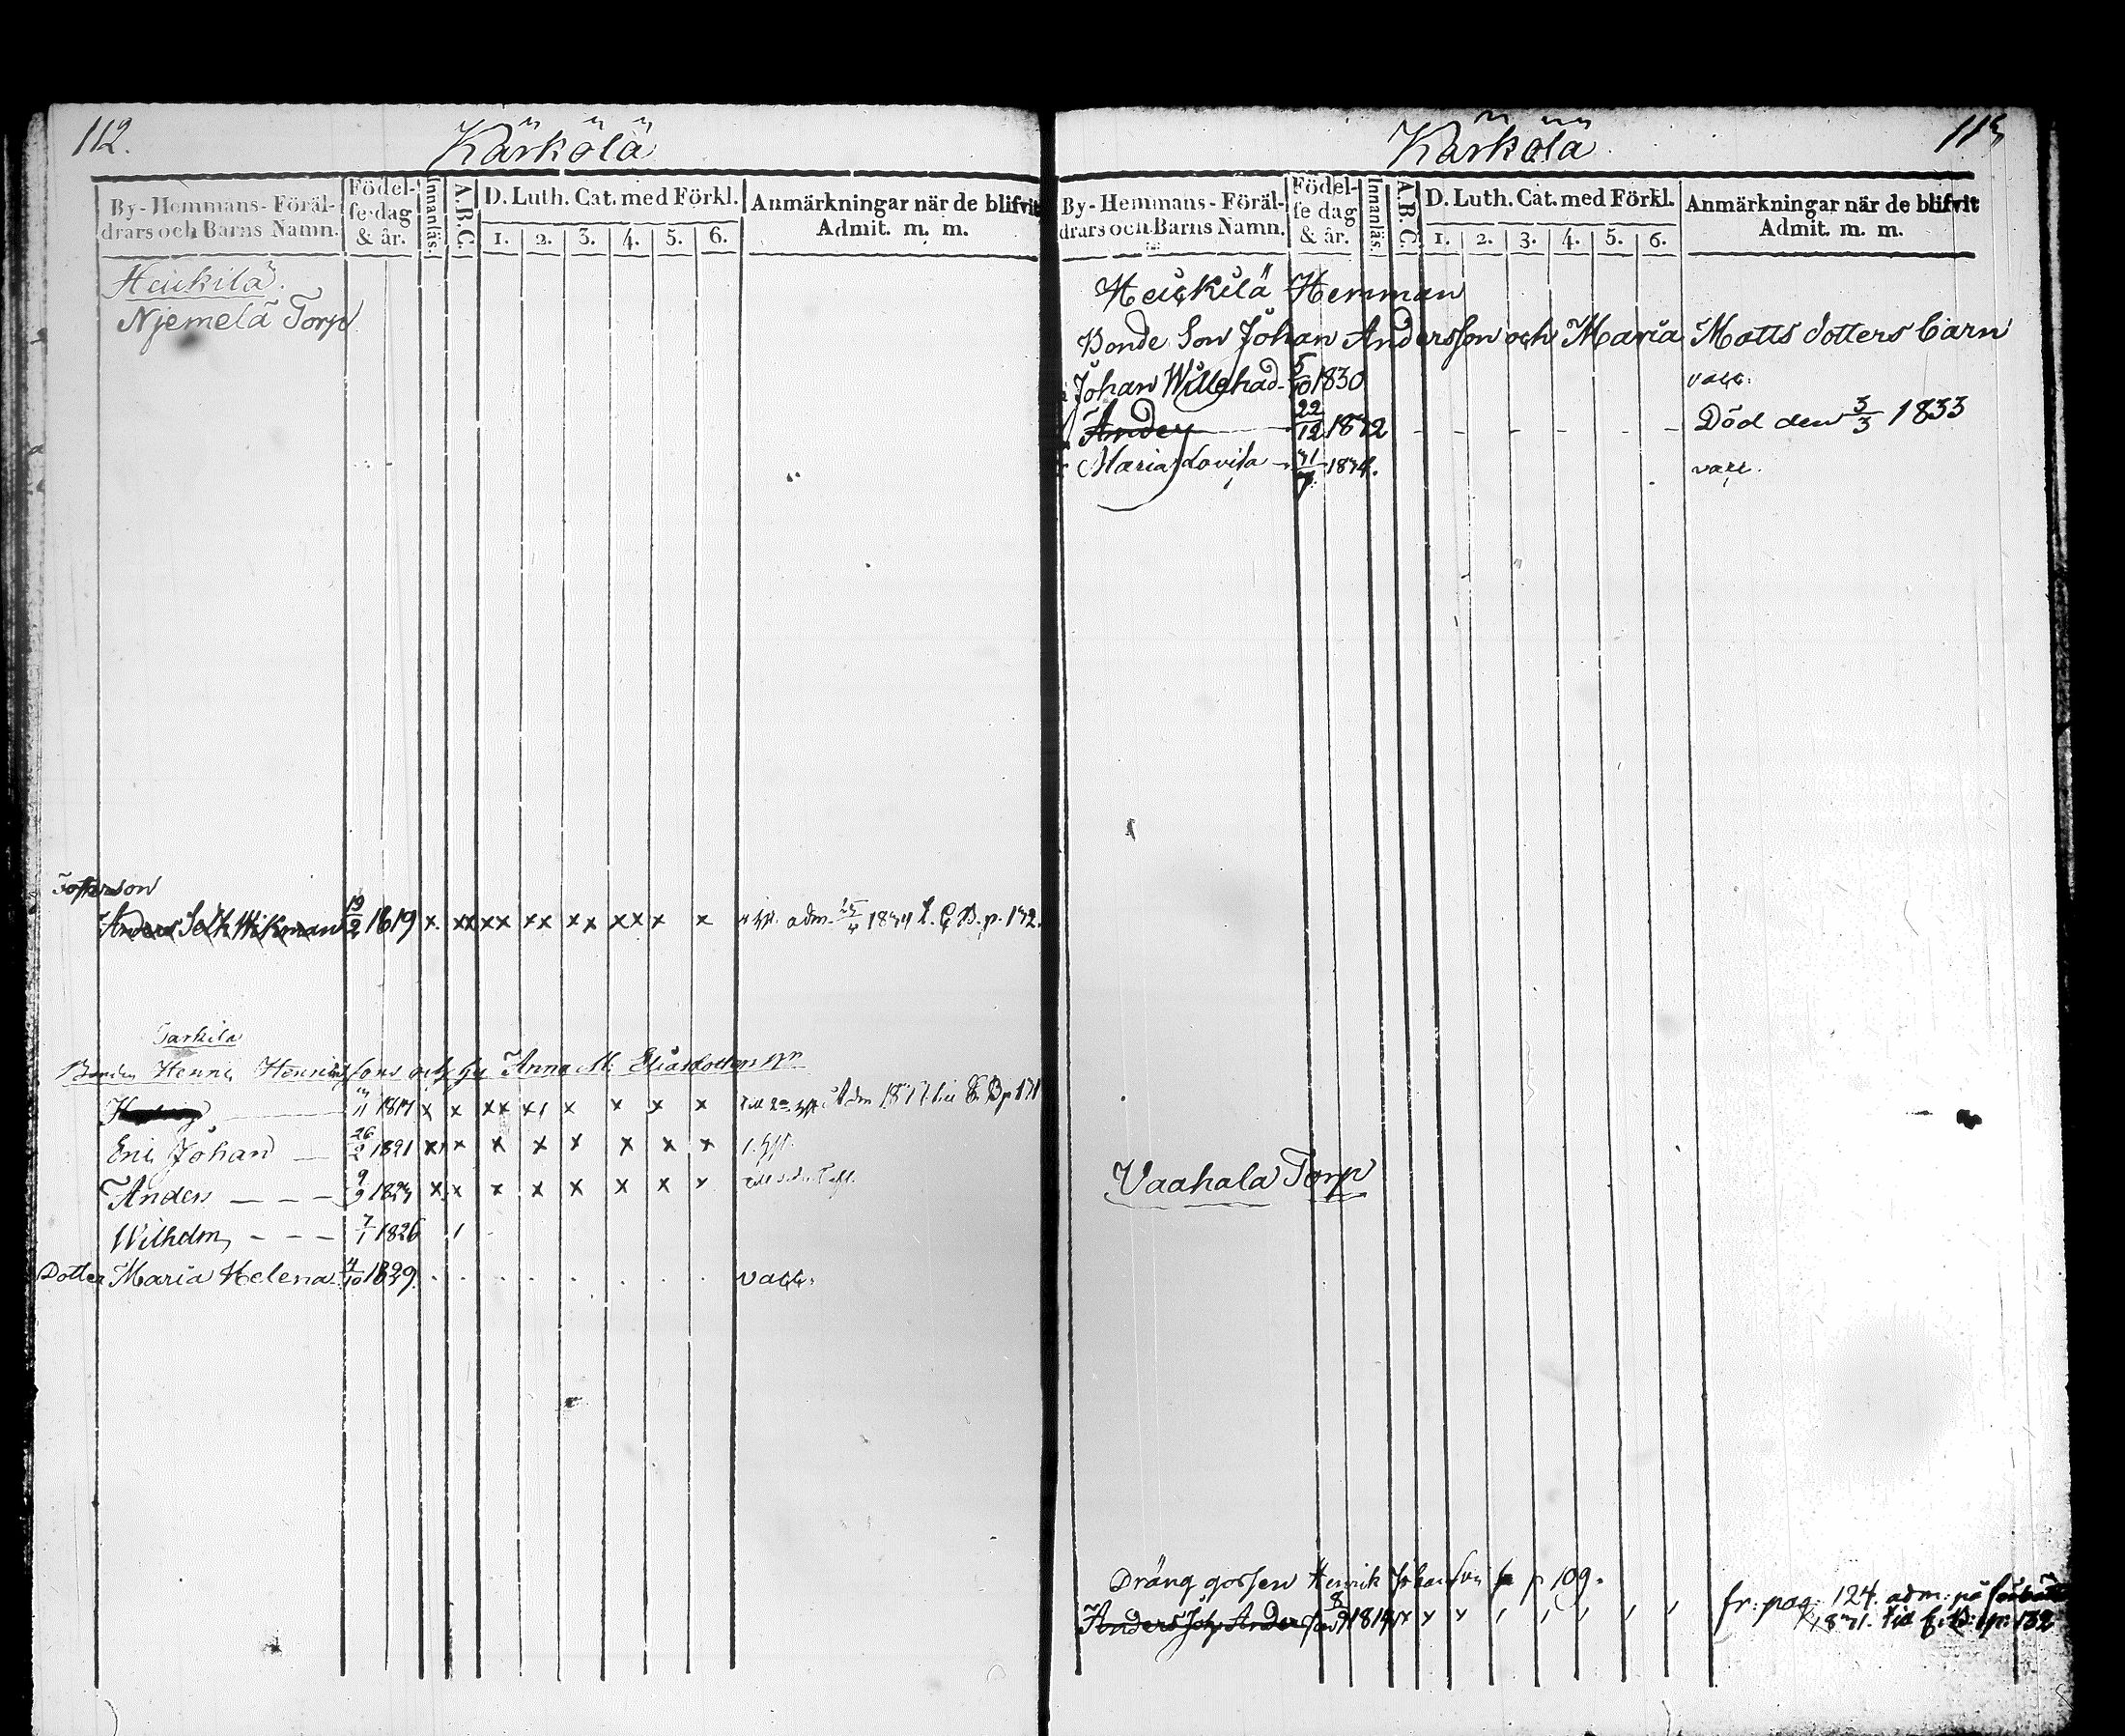 112.
Kärkölä
By-Hemmans-Föräl-
drars och Barns Namn.
Födel-
se dag
& år.
Innanläs.
A.B.C.
D. Luth. Cat. med Förkl.
1. 2. 3. 4. 5. 6.
Anmärkningar när de blifvit
Admit. m. m.
Heikilä.
Njemelä Torp
son
Anders Wikman 19/2 1819 x xx xx xx xx xx x x adm. 1834 p. 132.
Tarkila
Henric och Anna M: Eliasdotters
x x xx x x x x Adm
Eric Johan — 26/2 1821 x x x x x x x x
Anders — — — 9/9 x x x x x x x x
Wilhelm — — — 7/1 1826 1
Dotter Maria Helena 4/10 1829. vacc.
Kärkölä
113
By-Hemmans-Föräl-
drars och Barns Namn.
Födel-
se dag
& år.
Innanläs.
A.B.C.
D. Luth. Cat. med Förkl.
1. 2. 3. 4. 5. 6.
Anmärkningar när de blifvit
Admit. m. m.
Heickilä Hemman
Bonde Son Johan Andersson och Maria Matts dotters barn
Johan Willehad - 5/10 1830 vacc.
Anders 22/12 1832 - - - - - - Död den 3/3 1833
Maria Lovisa - 31/7 1834. vacc.
Vaahala Torp
Dräng gossen Henrik Johansson p 109.
Anders Joh. Andersson fr: pag: 124. adm: på
p: 132